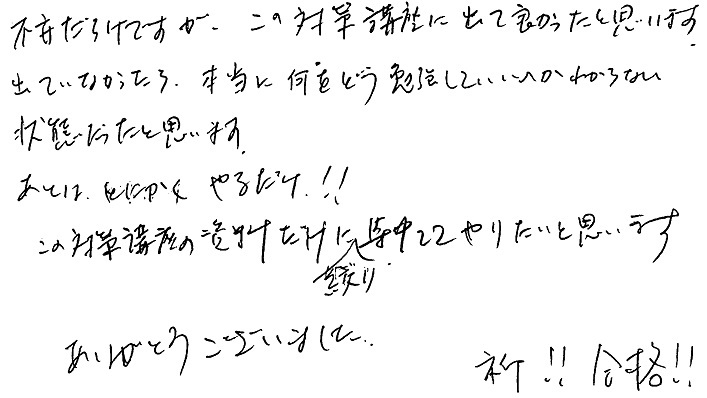 不安だらけですが、この対策講座に出て良かったと思います。
出ていなかったら、本当に何をどう勉強していいいかわからない
状態だったと思います。
あとは、とにかく やるだけ!!
この対策講座の資料だけに絞り、集中してやりたいと思います
ありがとうございました。
祈!! 合格!!